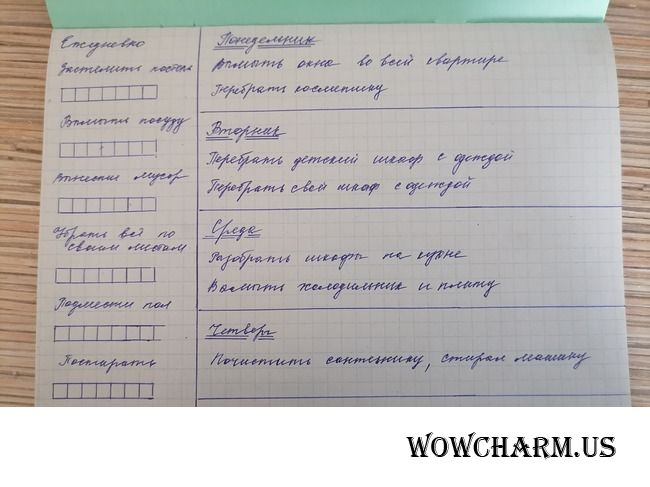 Ежедневно
Застелить постель
Вымыть посуду
Вынести мусор
Убрать всё по
своим местам
Подмести пол
Постирать
Понедельник
Вымыть окна во всей квартире
Перебрать косметику
Вторник
Перебрать детский шкаф с одеждой
Перебрать свой шкаф с одеждой
Среда
Разобрать шкафы на кухне
Вымыть холодильник и плиту
Четверг
Почистить сантехнику, стирал машину
WOWCHARM.US